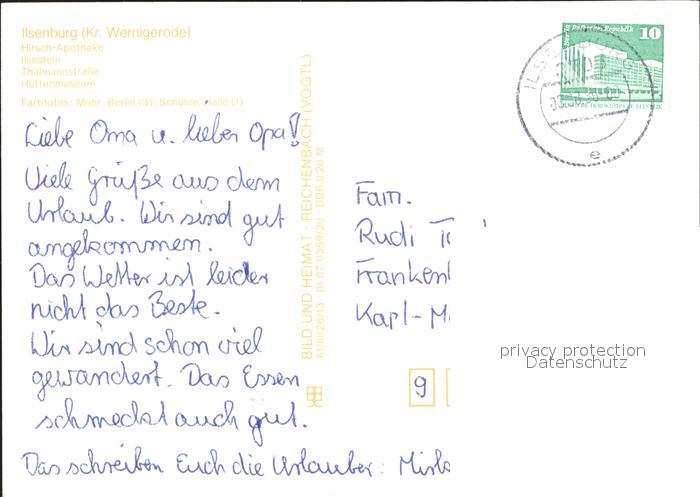 Ilsenburg (Kr. Wernigerode)
Hirsch-Apotheke
Ilsestein
Thälmannstraße
Hüttenmuseum
Farbfotos: Monr, Berlin (3); Schütze, Halle (1)
Liebe Oma u. lieber Opa!
Viele Grüße aus dem
Urlaub. Wir sind gut
angekommen.
Das Wetter ist leider
nicht das Beste.
Wir sind schon viel
gewandert. Das Essen
schmeckt auch gut.
Das schreiben Euch die Urlauber:
BILD UND HEIMAT · REICHENBACH (VOGTL)
A1/III/26/13 · 01 07 0359/20 · DDR 0,20 M
10
e
Fam.
Rudi
Karl-M
9
privacy protection
Datenschutz